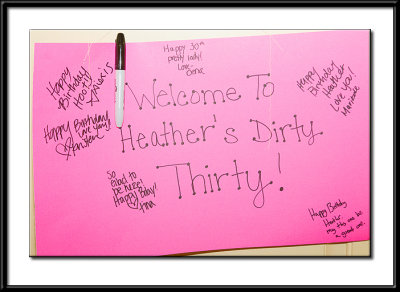 Happy
Birthday
Hooty!
Alexis
Happy 30th
pretty lady!
Love-
Happy
Birthday
Heather
Love You!
Marianne
Welcome To
Heather's Dirty
Thirty!
Happy Birthday
Love you!
So
Glad to
be here!
Happy Bday!
Tina
Happy Birthday
Heather,
may this one be
a great one.